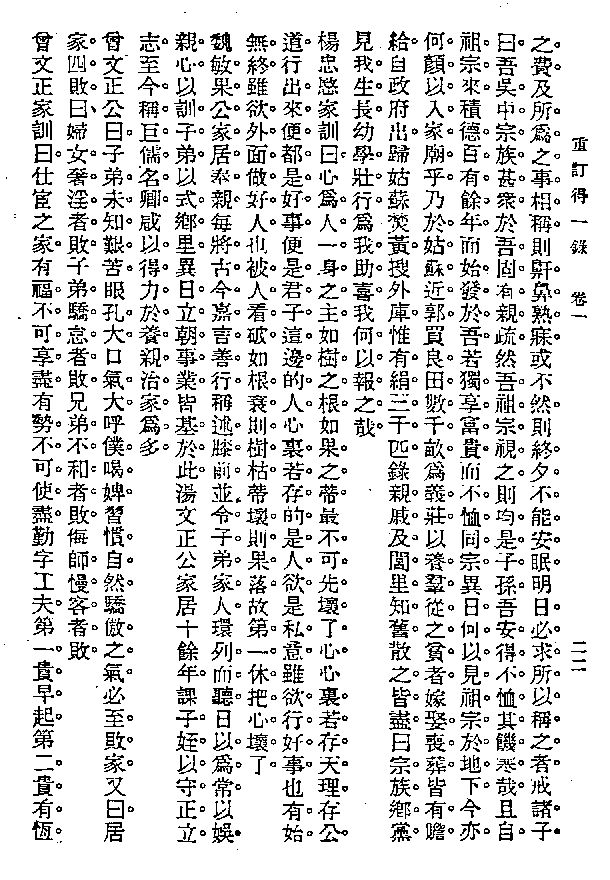 重訂得一錄　卷一　二二
之費及所爲之事相稱則鼾鼻熟寐或不然則終夕不能安眠明日必求所以稱之者戒諸子。
曰吾吳中宗族甚衆於吾固有親疏然吾祖宗視之則均是子孫吾安得不恤其饑寒哉且自
祖宗來積德百有餘年而始發於吾若獨享富貴而不恤同宗異日何以見祖宗於地下今亦
何顏以入家廟乎乃於姑蘇近郭買良田數千畝爲義莊以養羣從之貧者嫁娶喪葬皆有贍。
給自政府出歸姑蘇焚黃搜外庫惟有絹三千匹錄親戚及閭里知舊散之皆盡曰宗族鄉黨。
見我生長幼學壯行爲我助喜我何以報之哉
楊忠愍家訓曰心爲人一身之主如樹之根如果之蒂最不可先壞了心心裏若存天理存公
道行出來便都是好事便是君子這邊的人心裏若存的是人欲是私意雖欲行好事也有始
無終雖欲外面做好人也被人看破如根衰則樹枯蒂壞則果落故第一休把心壞了
魏敏果公家居奉親每將古今嘉言善行稱述膝前並令子弟家人環列而聽日以爲常以娛。
親心以訓子弟以式鄉里異日立朝事業皆基於此湯文正公家居十餘年課子姪以守正立。
志至今稱巨儒名卿咸以得力於養親治家爲多
曾文正公曰子弟未知艱苦眼孔大口氣大呼僕喝婢習慣自然驕傲之氣必至敗家又曰居
家四敗曰婦女奢淫者敗子弟驕怠者敗兄弟不和者敗侮師慢客者敗
曾文正家訓曰仕宦之家有福不可享盡有勢不可使盡勤字工夫第一貴早起第二貴有恆。